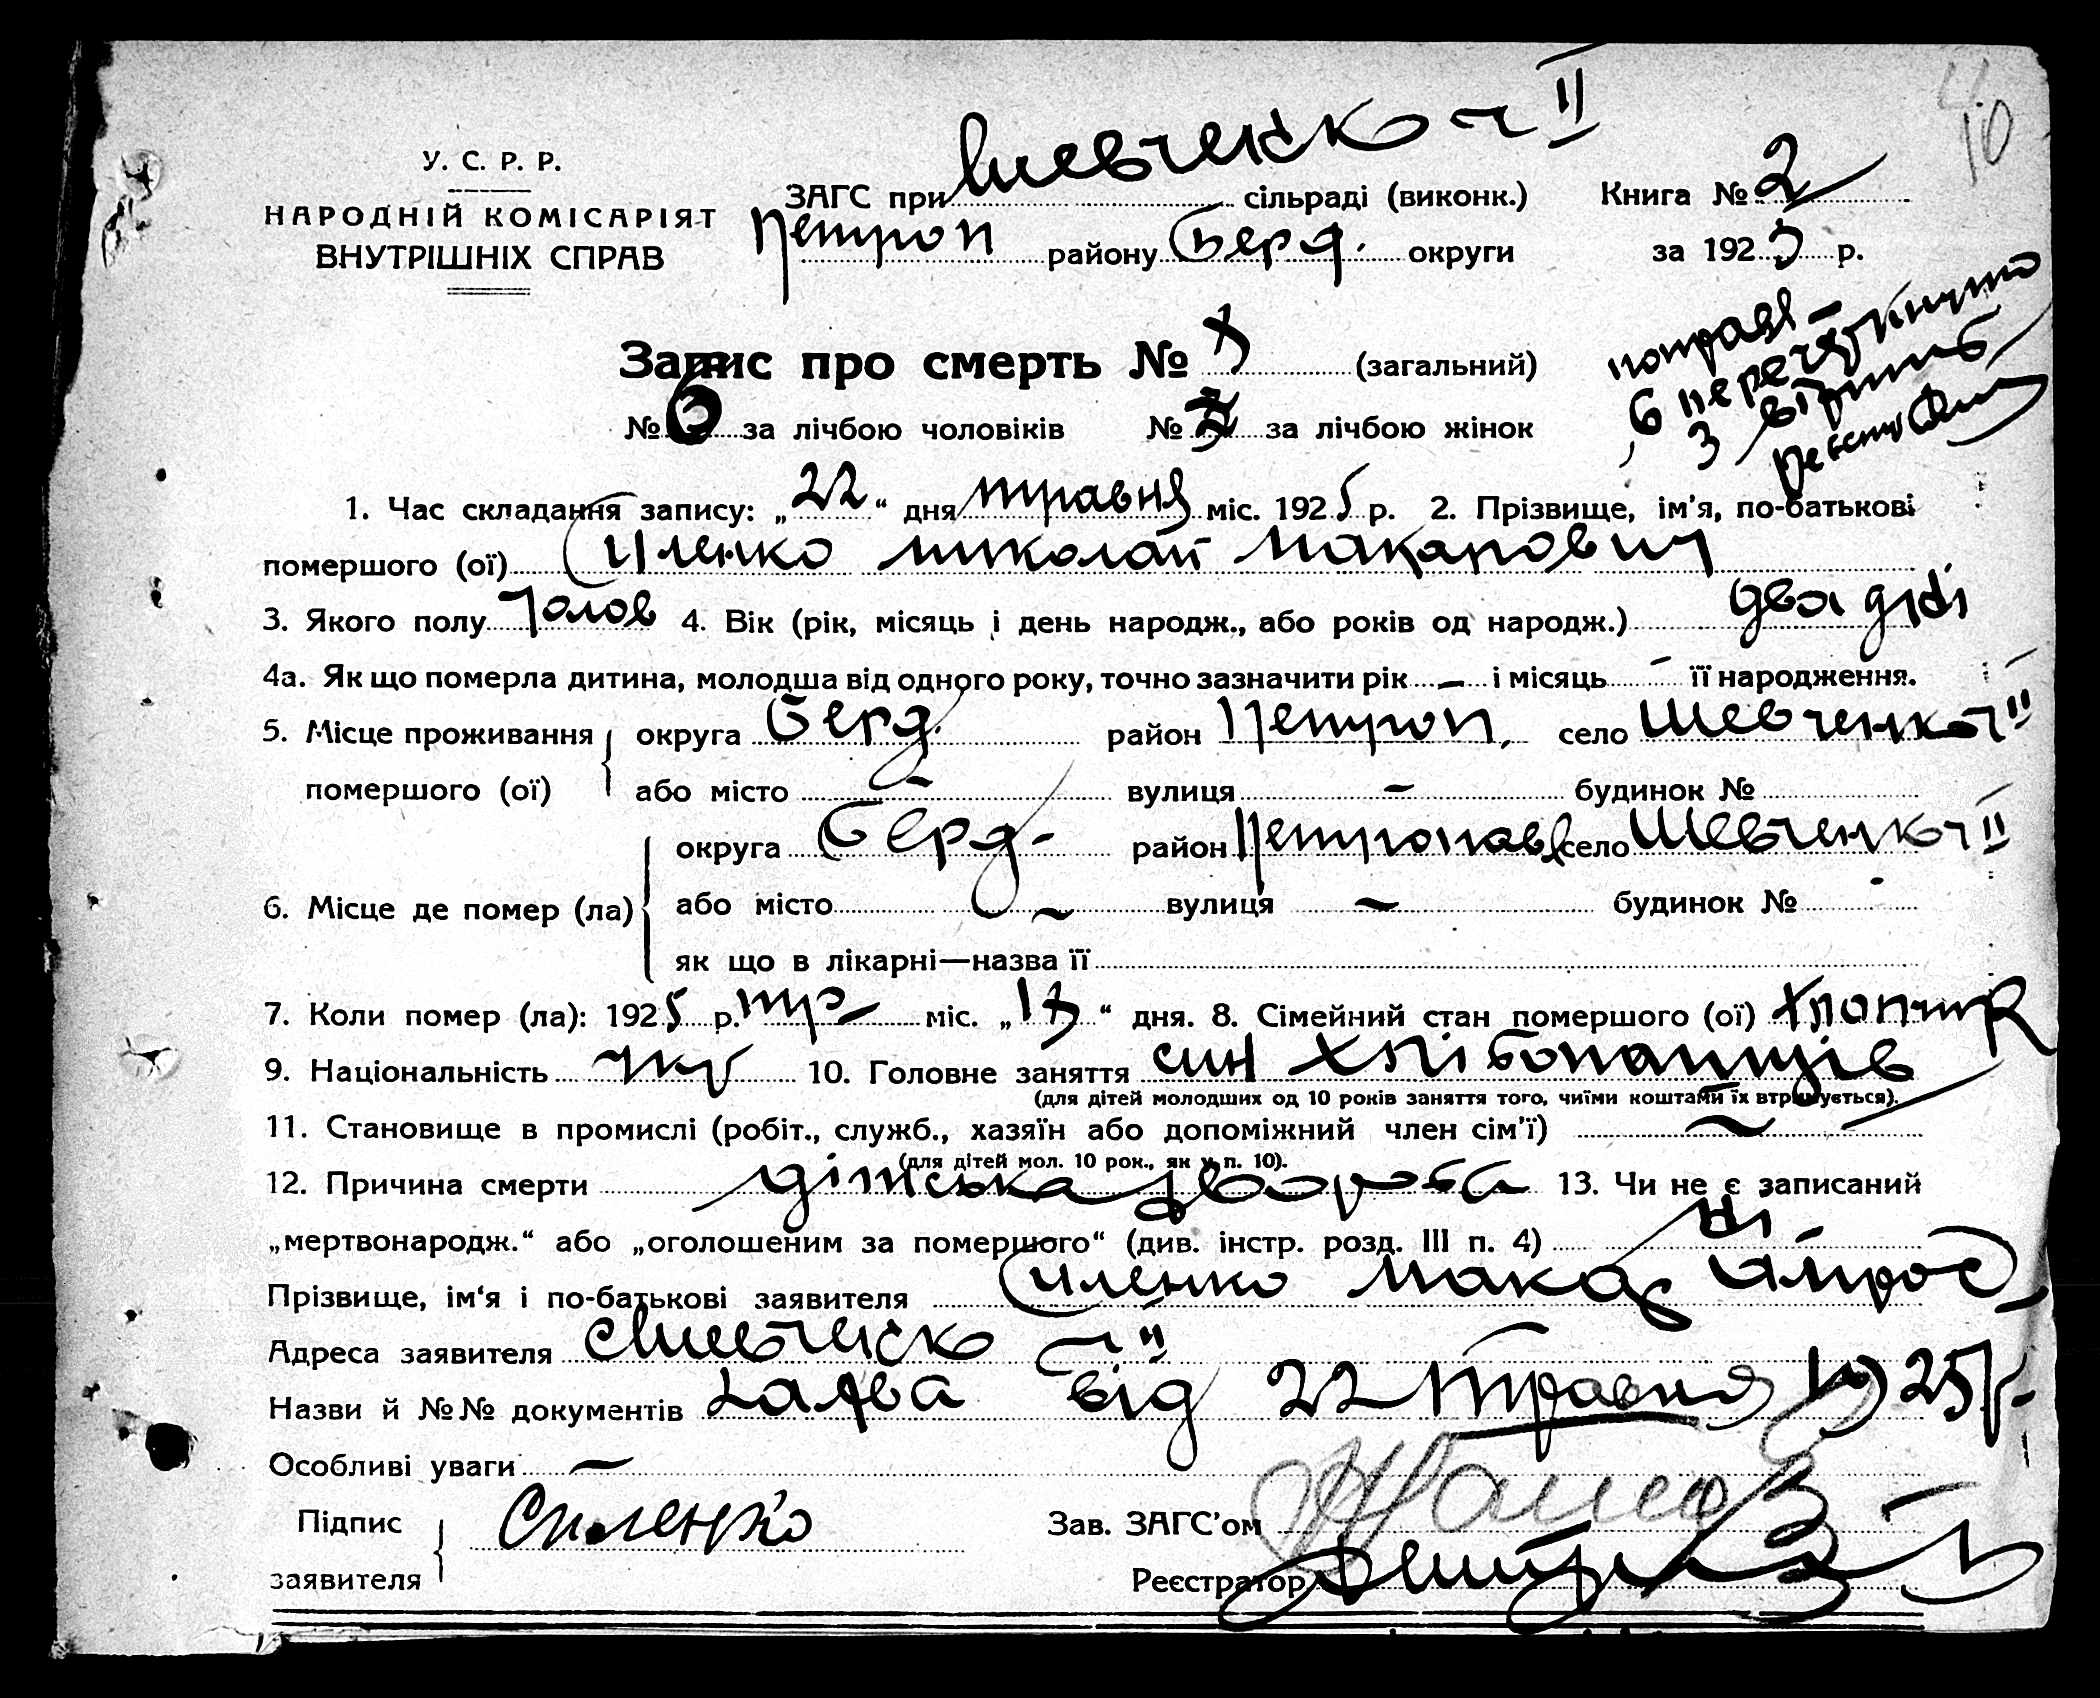 40
У. С. Р. Р.
НАРОДНІЙ КОМІСАРІЯТ
ВНУТРІШНІХ СПРАВ
ЗАГС при Шевченко II сільраді (виконк.) Книга № 2
Петроп району Берд. округи за 1925 р.
Запис про смерть № (загальний)
№ 6 за лічбою чоловіків № за лічбою жінок
6
3
1. Час складання запису: „22“ дня травня міс. 1925 р. 2. Прізвище, ім’я, по-батькові
помершого (ої) Силенко Миколай Макарович
3. Якого полу Чолов 4. Вік (рік, місяць і день народж., або років од народж.) два
4а. Як що померла дитина, молодша від одного року, точно зазначити рік — і місяць — її народження.
5. Місце проживання округа Берд. район Петроп. село Шевченко II
помершого (ої) або місто — вулиця - будинок №
округа Берд- район Петропавл село Шевченко II
6. Місце де помер (ла) або місто ~ вулиця ~ будинок № -
як що в лікарні—назва її
7. Коли помер (ла): 1925 р. тр— міс. „13“ дня. 8. Сімейний стан помершого (ої) Хлопчик
9. Національність укр 10. Головне заняття син хліборобців
(для дітей молодших од 10 років заняття того, чиїми коштами їх втримується).
11. Становище в промислі (робіт., служб., хазяїн або допоміжний член сім’ї) ~
(для дітей мол. 10 рок., як у п. 10).
12. Причина смерти дітська хвороба 13. Чи не є записаний
„мертвонародж.“ або „оголошеним за помершого“ (див. інстр. розд. III п. 4) ні
Прізвище, ім‘я і по-батькові заявителя Силенко Макар
Адреса заявителя Шевченко II
Назви й №№ документів заява від 22 травня 1925 р.
Особливі уваги ~
Підпис Силенко Зав. ЗАГС’ом
заявителя Реєстратор